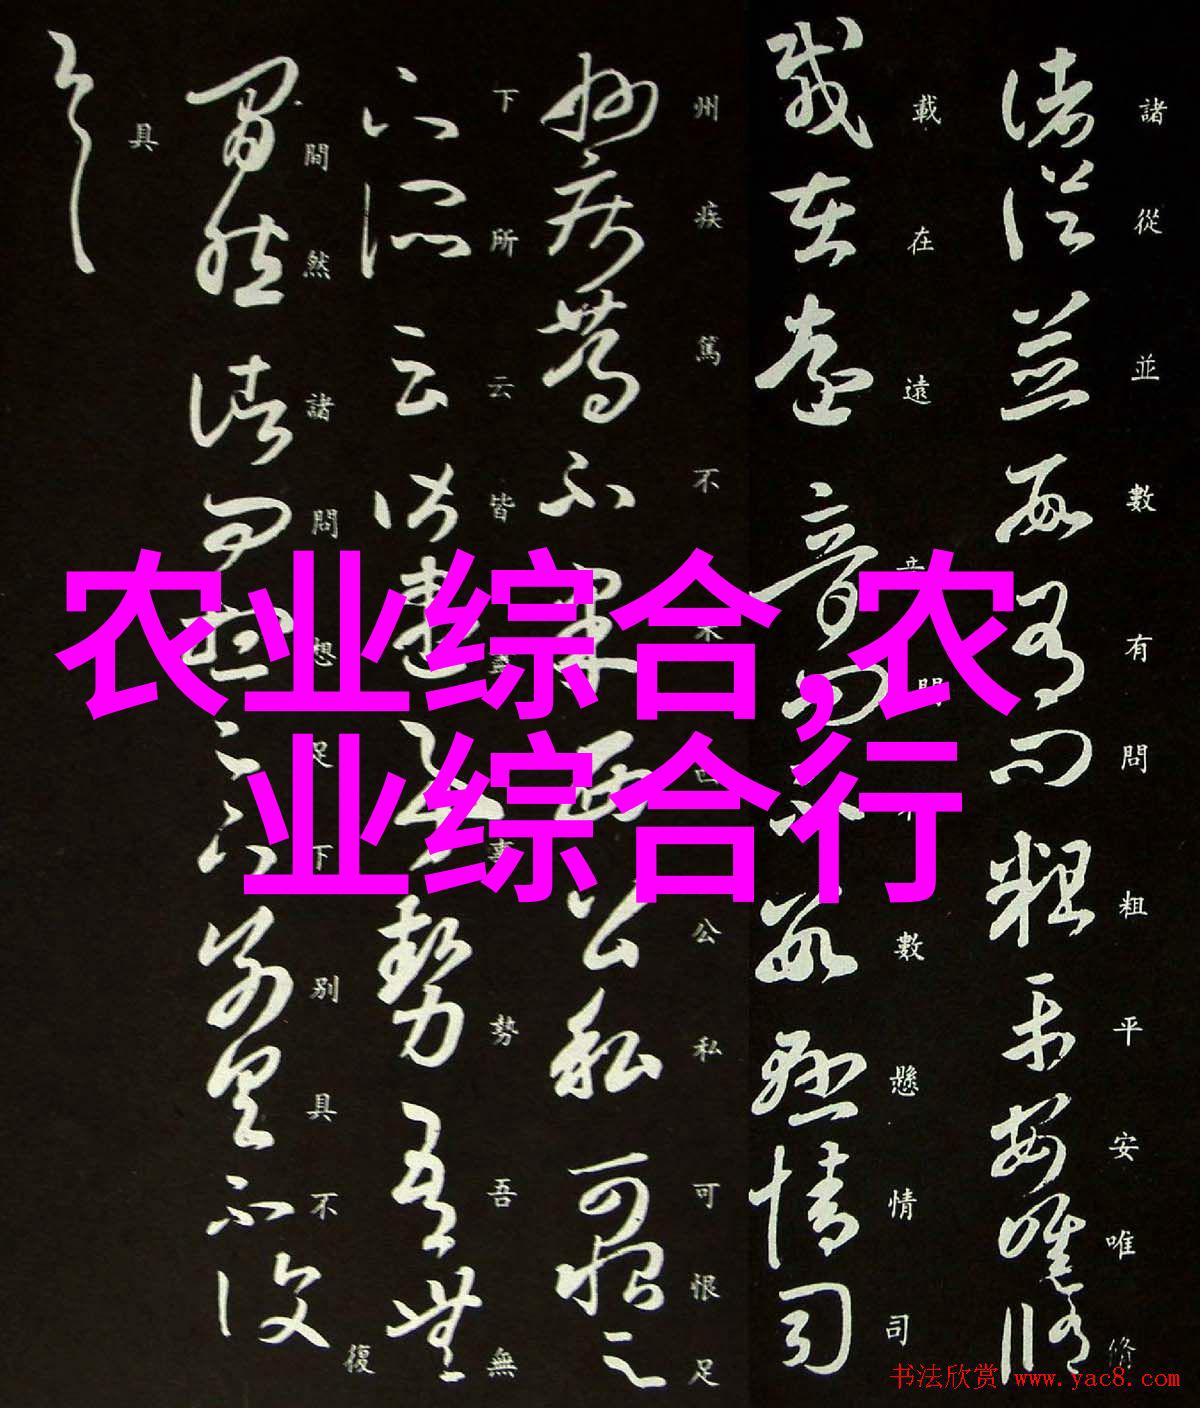 农业综合,农
业综合行
諸從並數有問粗平安唯修
載在遠音問不數懸情司
州疾篤不果西公私可恨足
下所云皆盡事勢吾無
間然諸問想足下別具不復
具
书法欣赏 www.yac8.com